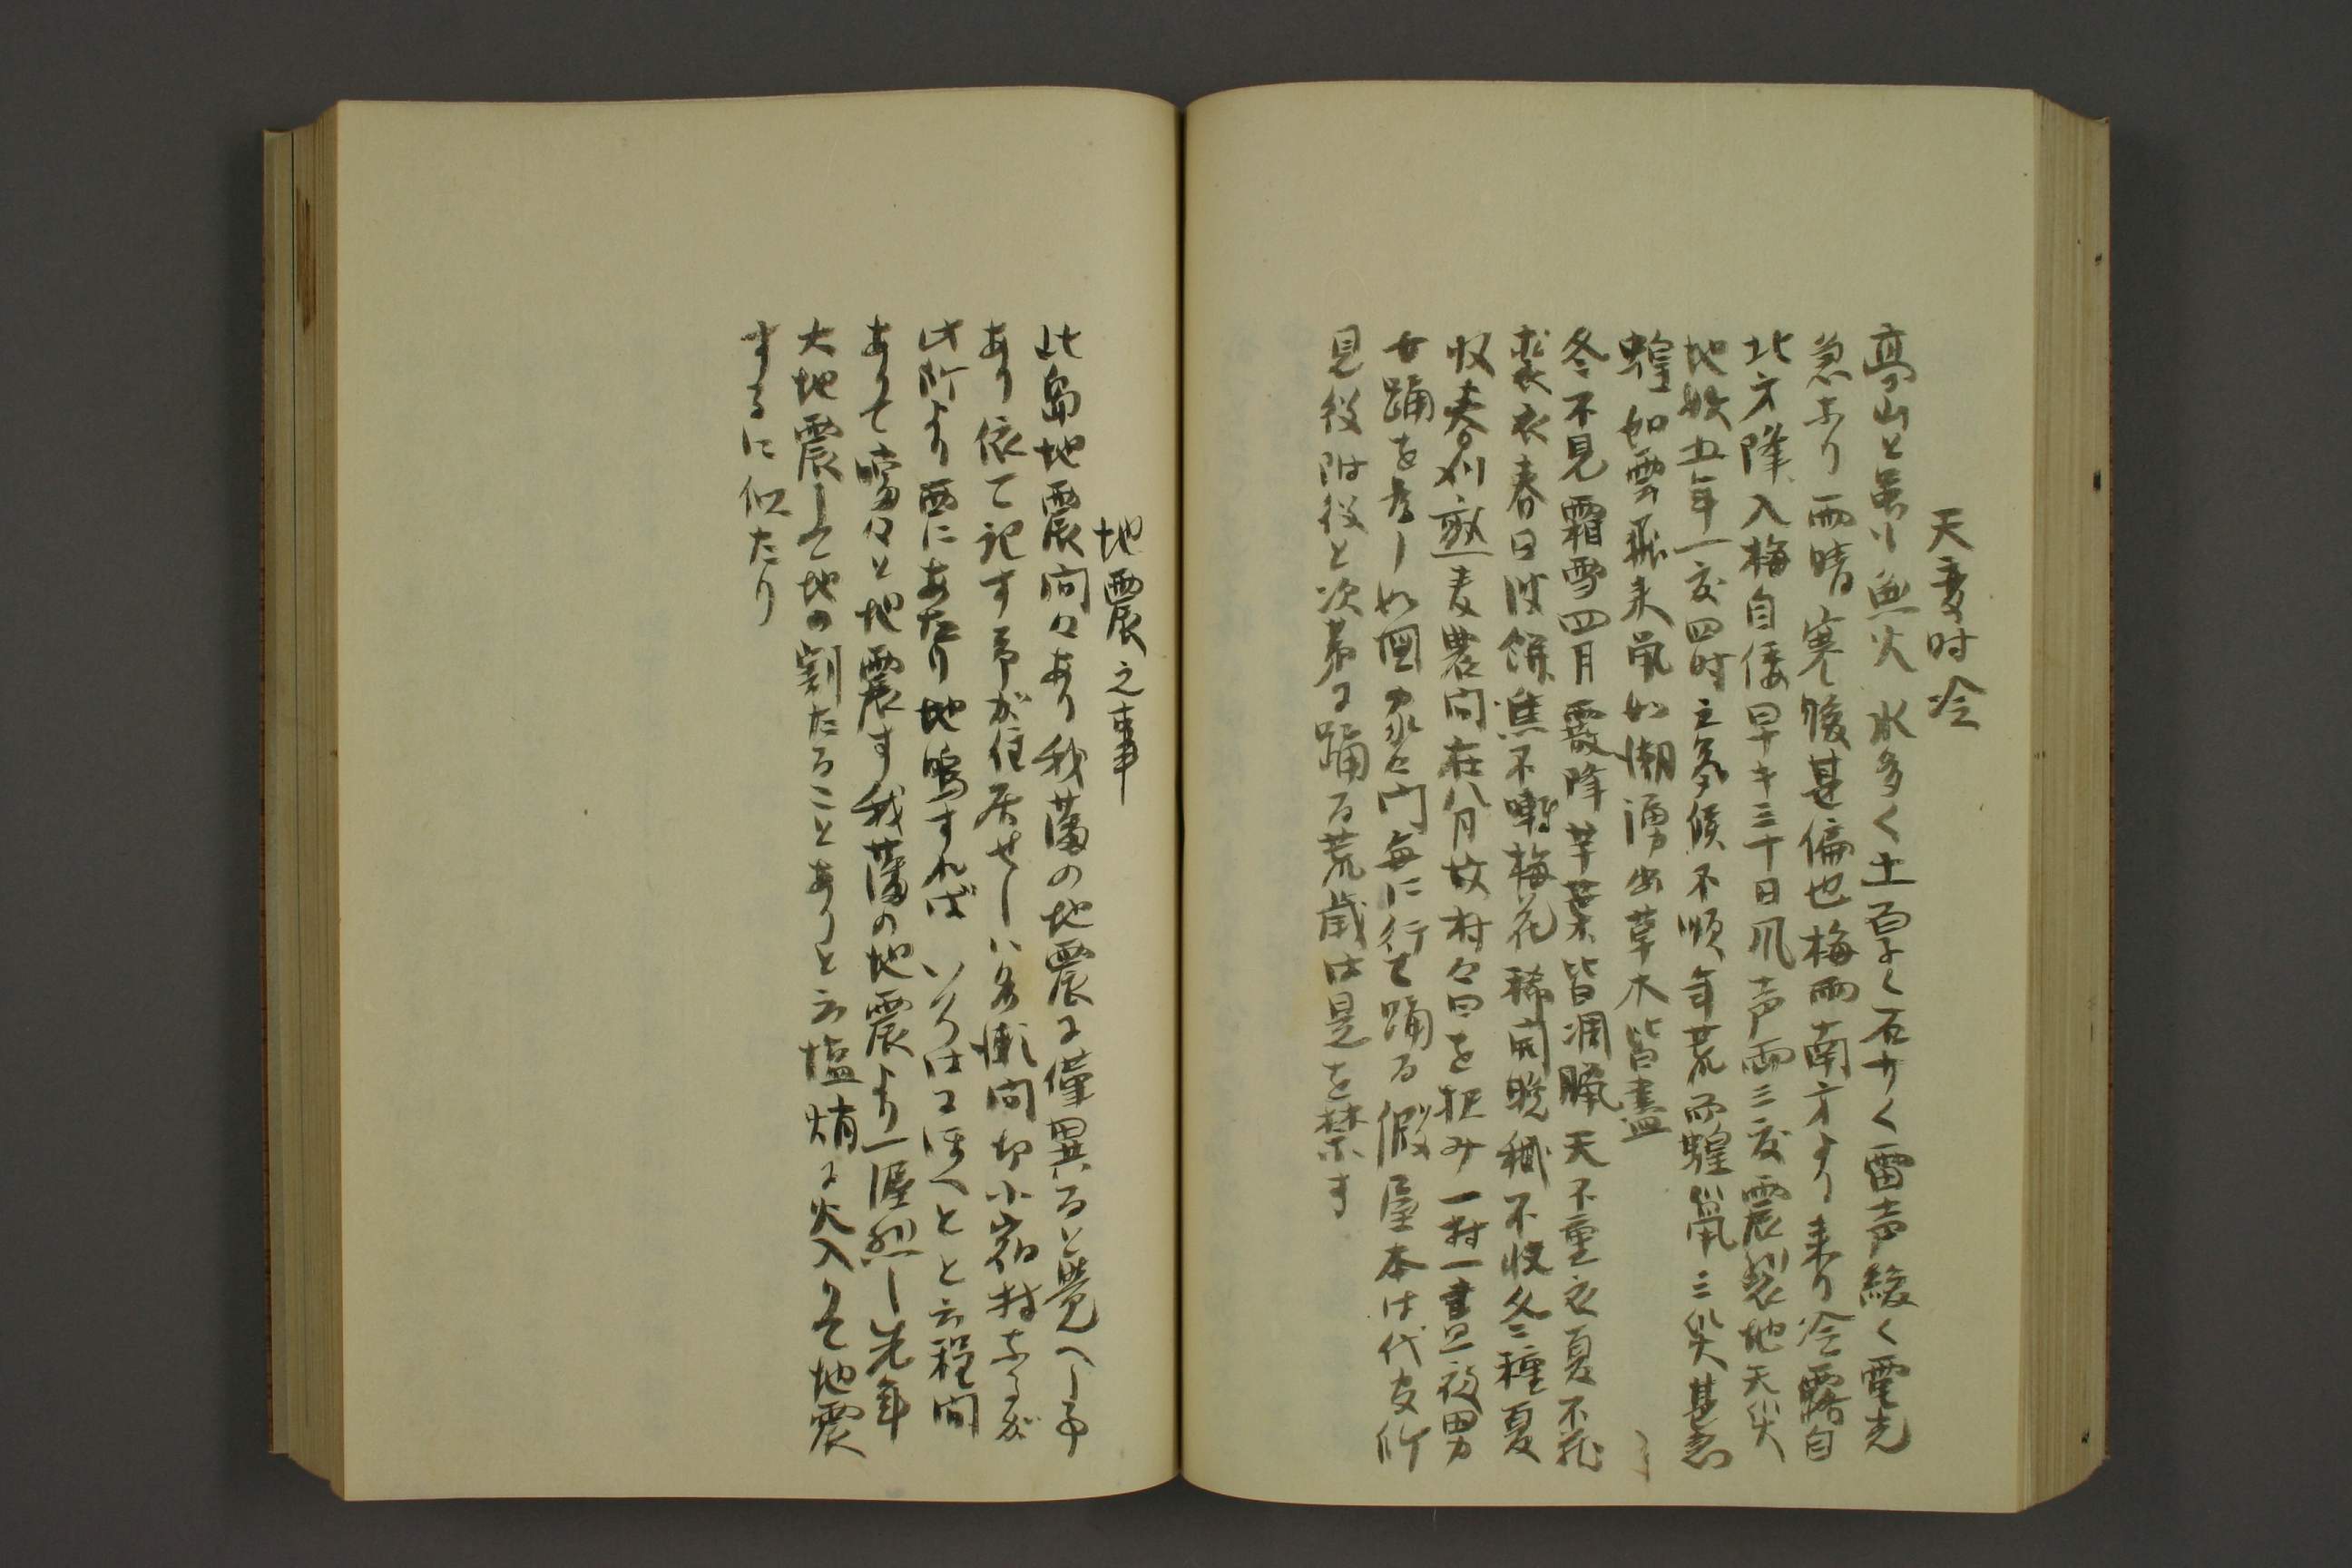 天変時冷
高山と虽い無火水多く土高く石廿く雷声緩く電光
急なり雨晴寒暖甚偏也梅雨南方より来り冷露自
北方降入梅自倭早キ三十日爪声雨三度震裂地天災
地妖五年一度四時立気候不順年荒而蝗鼠三災甚急
蝗如雲飛来鼠如潮湧出草木皆盡
冬不見霜雪四月霰降芋葉皆凋臘天不重衣夏不裁
裘衣春日餅進不囀梅花稀開晩穐不收冬種夏
收春刈敷麦農間在八分月故村々日を択み一村一晝一夜男
女踊を為し如図家々門毎に行て踊る假屋本は代官所
見役附役と次第に踊る荒歳は是を禁す
地震之事
此島地震間々あり我藩の地震に僅異ると覚へし予
あり依て記す予が住居せしハ名瀬間切小宿村なるが
此所より西にあたり地鳴すれば いろはにほへと と云程間
ありて鳴々と地震す我藩の地震より一涯烈し先年
大地震して地の割たることありと云塩焇に火入りて地震
するに似たり